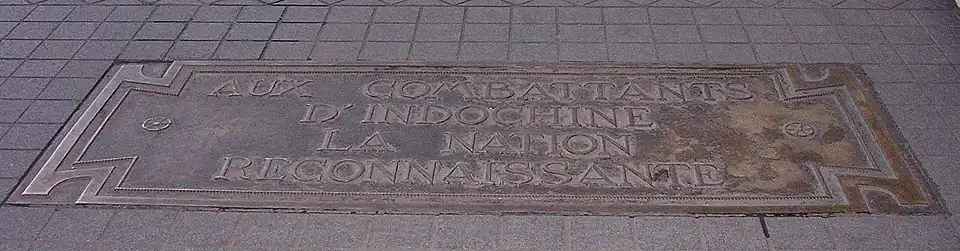 AUX COMBATTANTS
D'INDOCHINE
LA NATION
RECONNAISSANTE